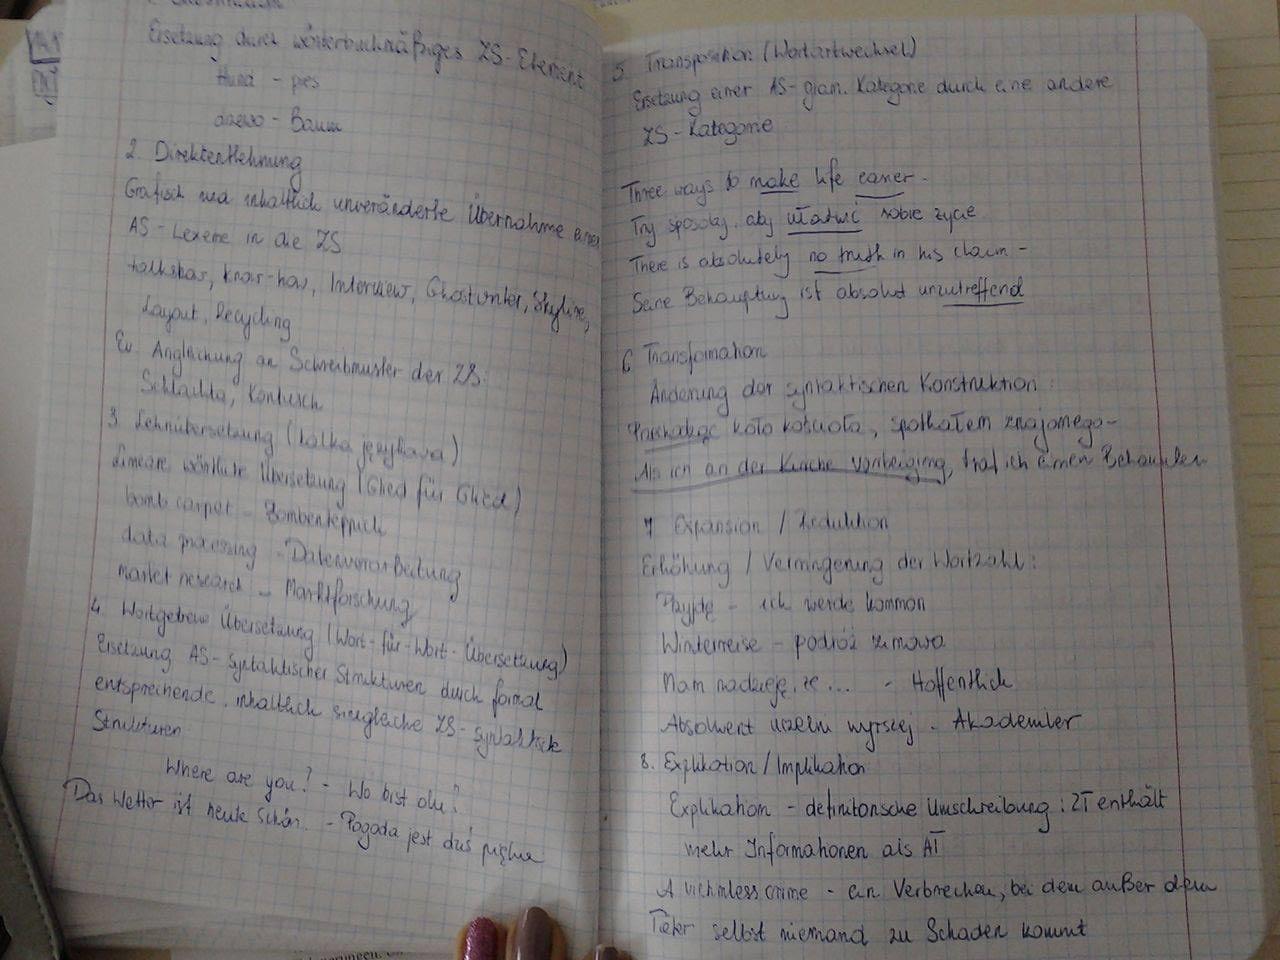 Ersetzung durch wörterbuchmäßiges ZS-Element
Hund - pies
drzewo - Baum
2. Direktentlehnung
Grafisch und inhaltlich unveränderte Übernahme eines
AS-Lexems in die ZS
talkshow, know-how, Interview, Ghostwriter, Skyline,
Layout, Recycling
Ev. Angleichung an Schreibmuster der ZS:
Schlachta, Kontusch
3. Lehnübersetzung (kalka językowa)
Lineare, wörtliche Übersetzung (Glied für Glied)
bomb carpet - Bombenteppich
data processing - Datenverarbeitung
market research - Marktforschung
4. Wortgetreue Übersetzung (Wort-für-Wort-Übersetzung)
Ersetzung AS-syntaktischer Strukturen durch formal
entsprechende, inhaltlich sinngleiche ZS-syntaktische
Strukturen
Where are you? - Wo bist du?
Das Wetter ist heute schön. - Pogoda jest dziś piękna
5. Transposition (Wortartwechsel)
Ersetzung einer AS-gram. Kategorie durch eine andere
ZS-Kategorie
Three ways to make life easier -
Trzy sposoby, aby ułatwić sobie życie
There is absolutely no truth in his claim -
Seine Behauptung ist absolut unzutreffend
6 Transformation
Änderung der syntaktischen Konstruktion:
Przechodząc koło kościoła, spotkałem znajomego -
Als ich an der Kirche vorbeiging, traf ich einen Bekannten
7 Expansion / Reduktion
Erhöhung / Verringerung der Wortzahl:
Przyjdę - ich werde kommen
Winterreise - podróż zimowa
Mam nadzieję, że... - Hoffentlich
Absolwent uczelni wyższej - Akademiker
8. Explikation / Implikation
Explikation - definitorische Umschreibung: ZT enthält
mehr Informationen als AT
A victimless crime - ein Verbrechen, bei dem außer dem
Täter selbst niemand zu Schaden kommt